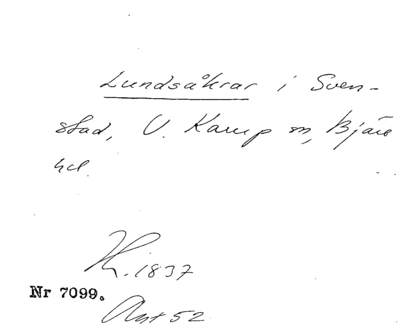 Lundsåkrar i Sven-
stad, V. Karup sn, Bjäre
hd.
K. 1837
Nr 7099.
Akt 52